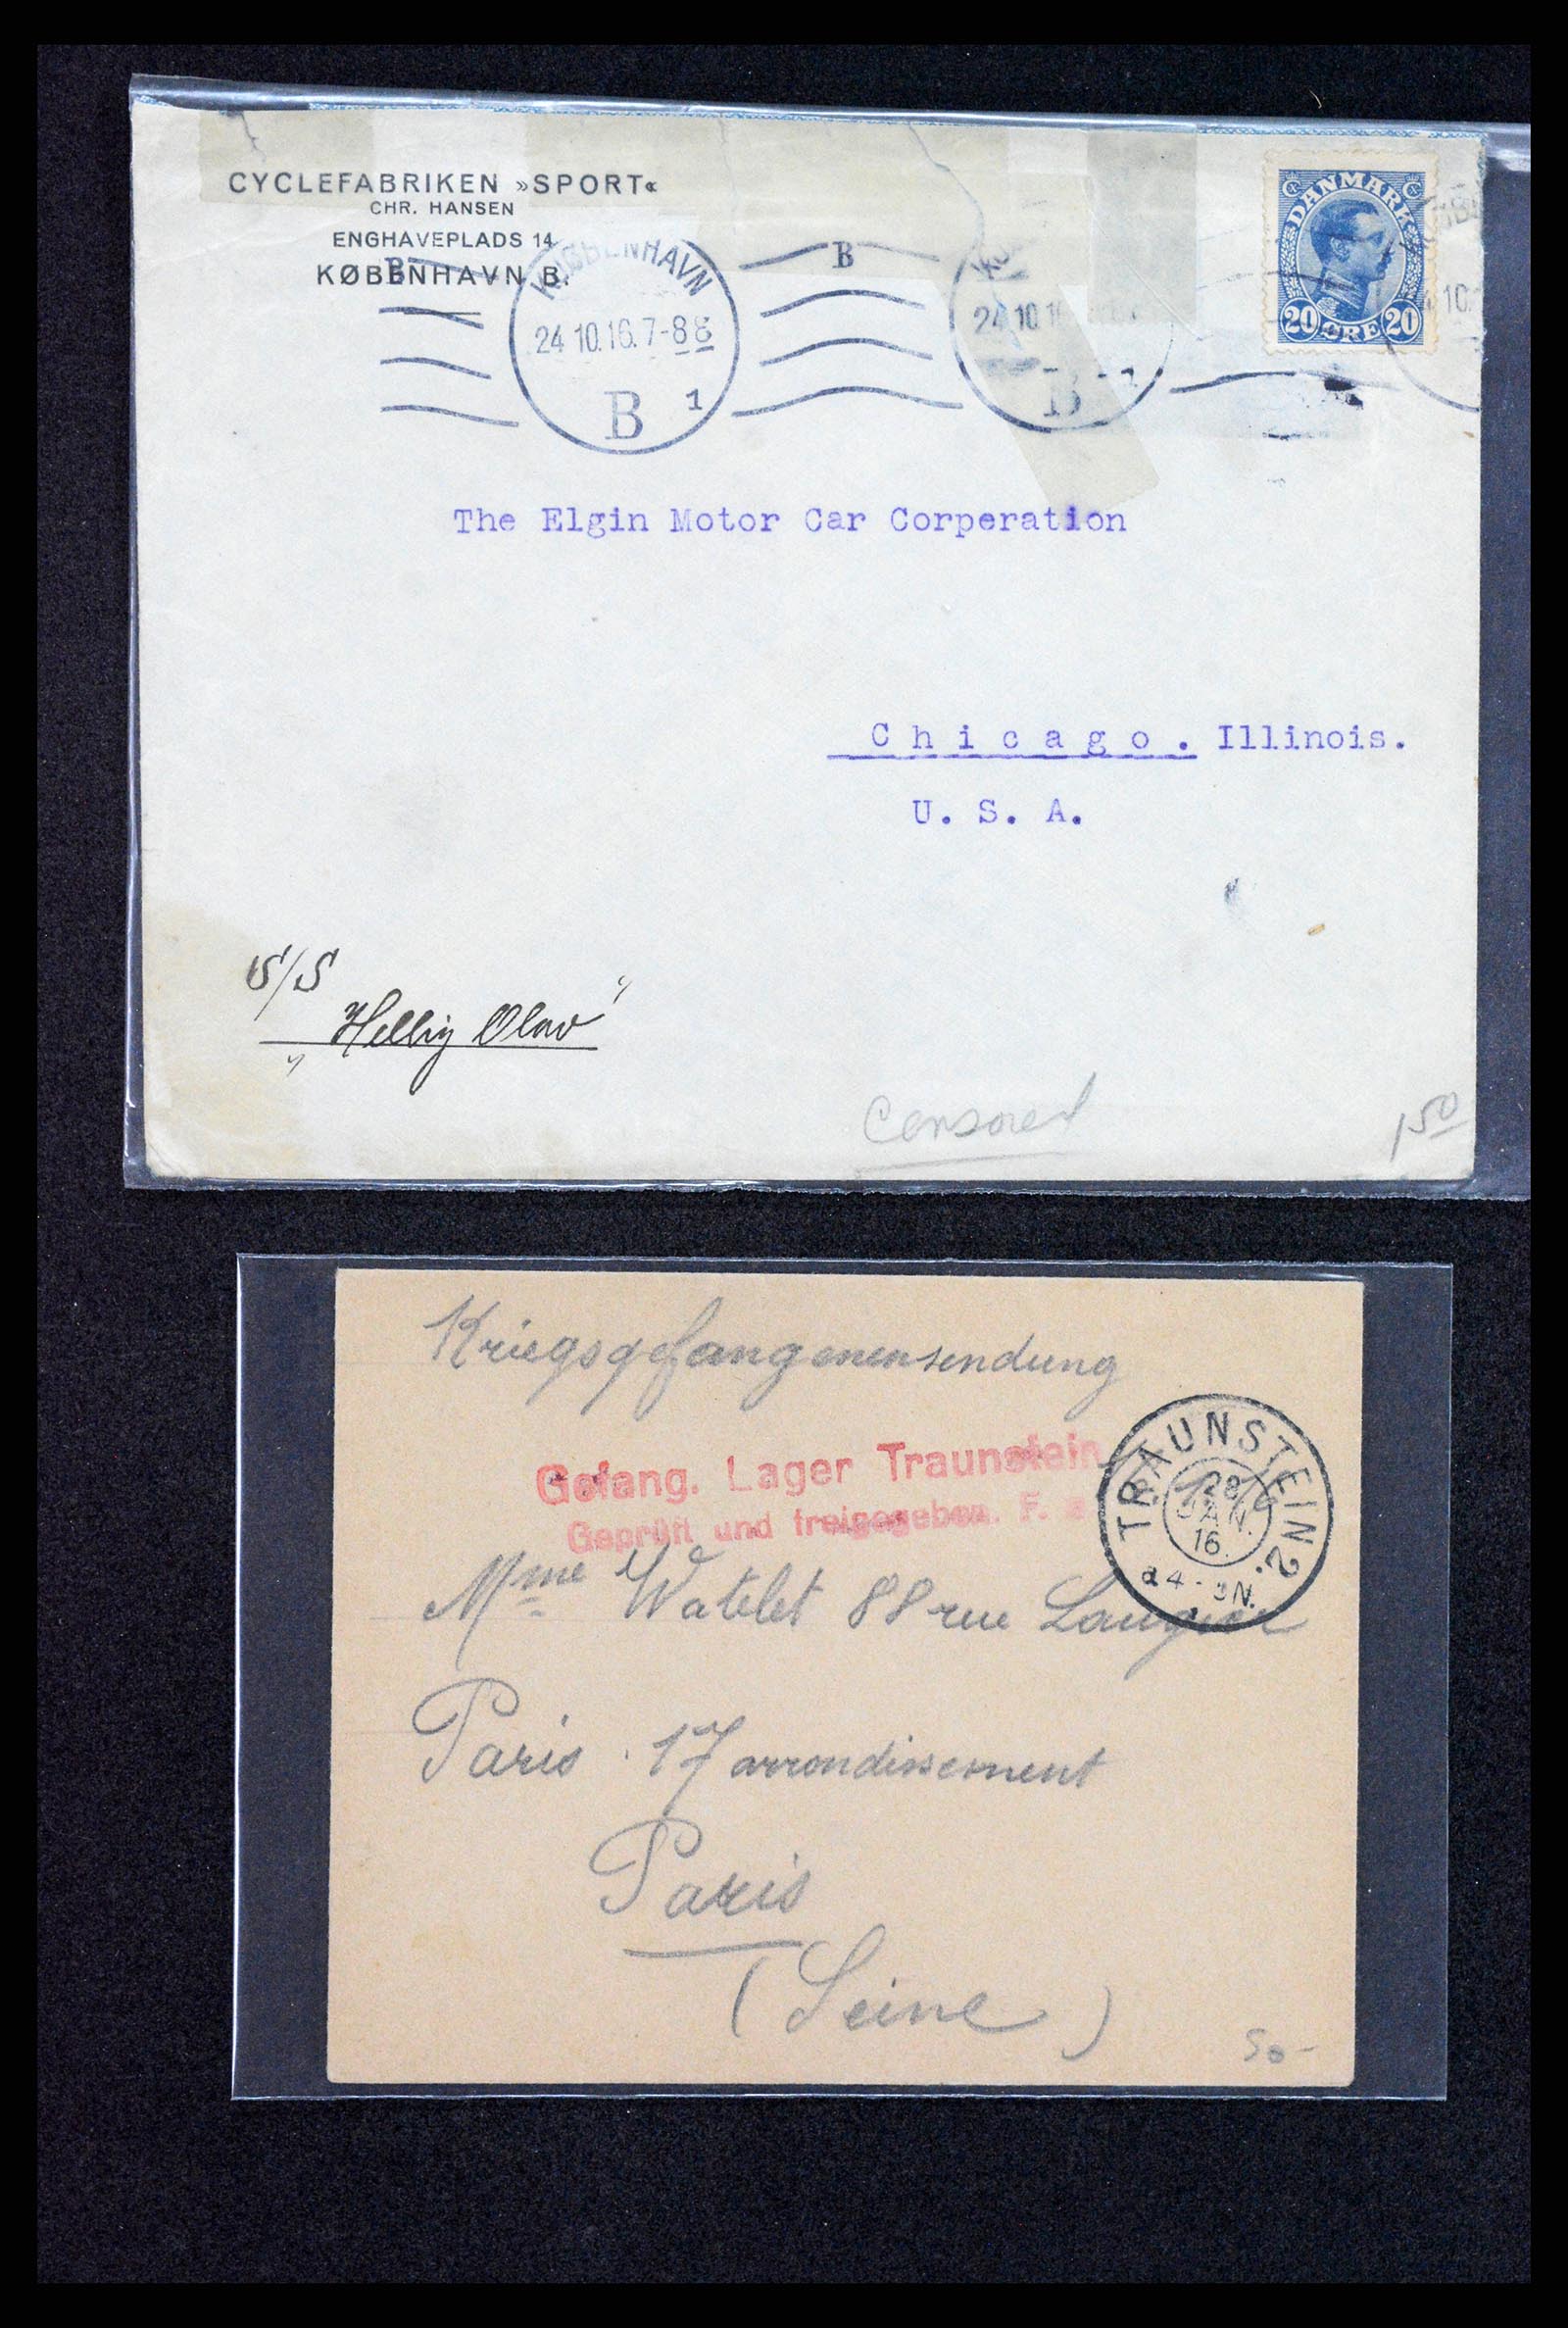 CYCLEFABRIKEN »SPORT«
CHR. HANSEN
ENGHAVEPLADS 14
KØBENHAVN B.
DANMARK
20 ØRE 20
B
B
KØBENHAVN
24 10.16. 7-8 8
B 1
24 10.1
B
10.
The Elgin Motor Car Corperation
Chicago. Illinois.
U. S. A.
S/S
„Hellig Olav"
Censored
1 50
Kriegsgefangenensendung
Gefang. Lager Traunstein
Geprüft und freigegeben. F. a
TRAUNSTEIN 2.
28
JAN.
16.
Mme Watelet 88 rue Laugier
Paris 17 arrondissement
Paris
(Seine)
50-